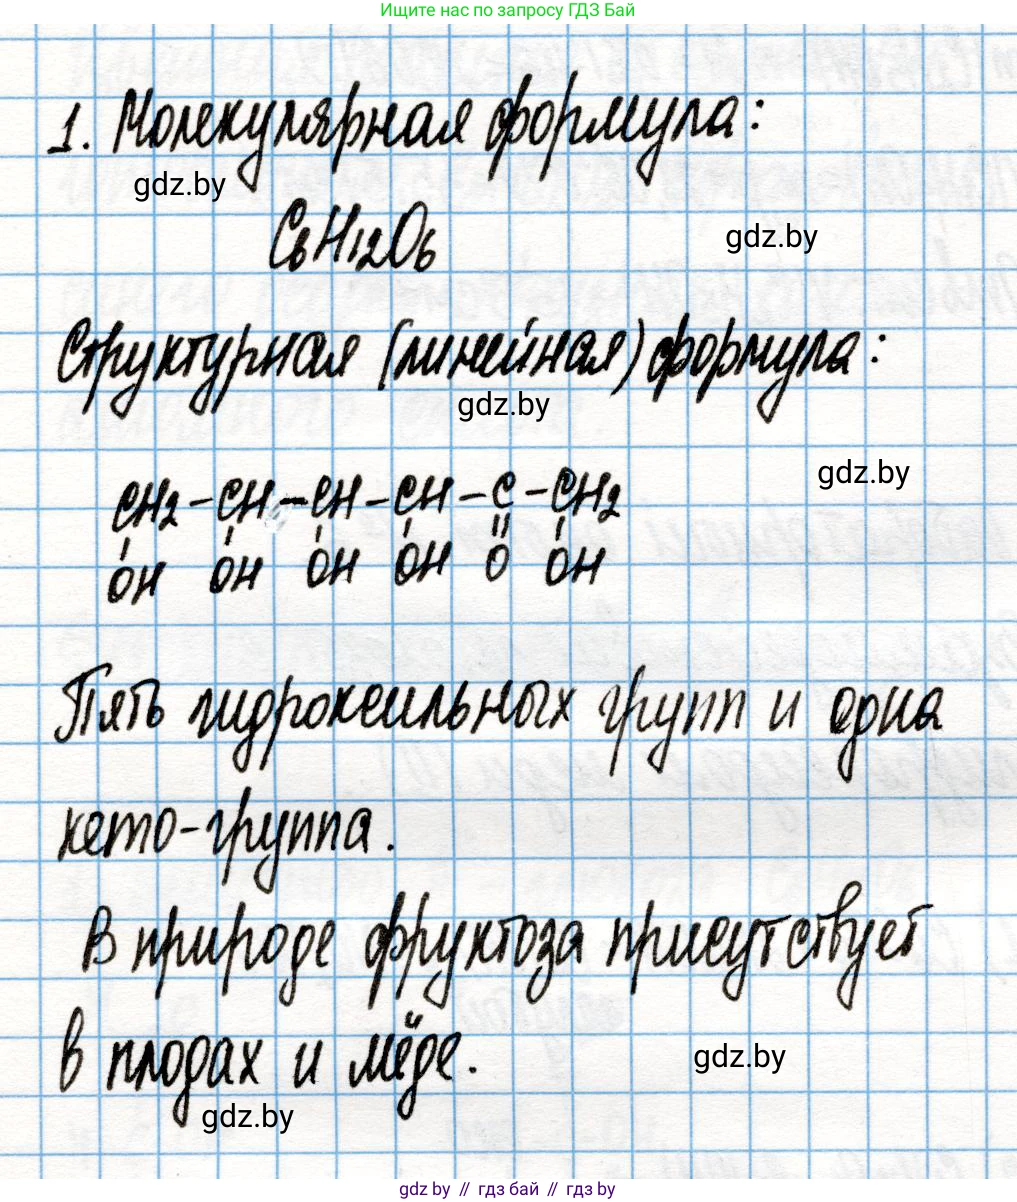 Ищите нас по запросу ГДЗ Бай
1. Молекулярная формула:
gdz.by
C6H12O6
gdz.by
Структурная (линейная) формула:
gdz.by
gdz.by
CH2 - CH - CH - CH - C - CH2
OH OH OH OH O OH
Пять гидроксильных групп и одна
кето-группа.
В природе фруктоза присутствует
в плодах и мёде.
gdz.by
gdz.by
gdz.by // гдз бай // гдз by